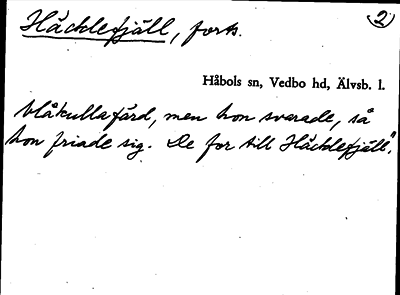 Häcklefjäll, forts.
2
Håbols sn, Vedbo hd, Älvsb. l.
blåkullafärd, men hon svarade, så
hon friade sig. De for till Häcklefjäll."